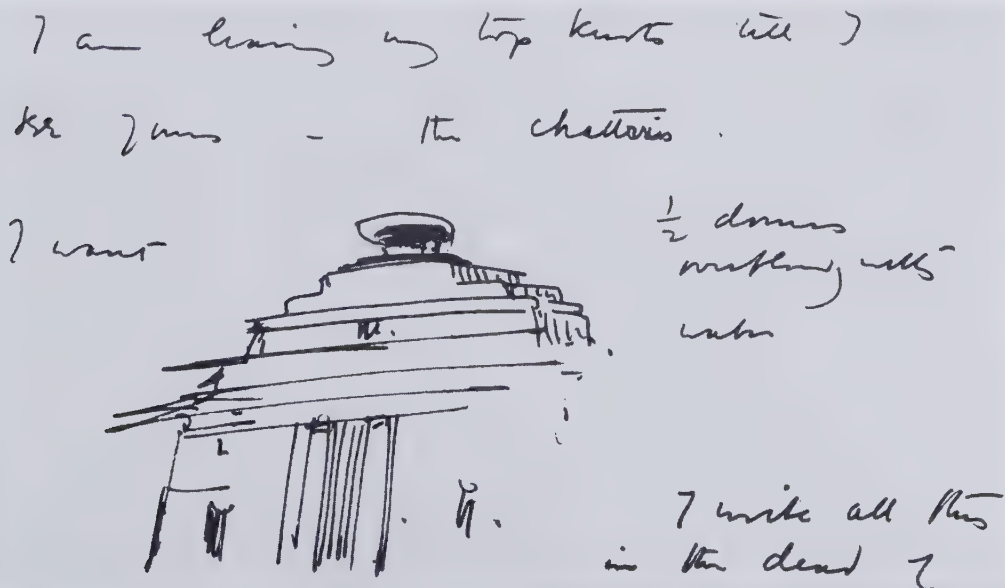 I am leaving my top knots till I
see yours - the chattris.
I want
½ domes
overflowing with
water
I write all this
in the dead of